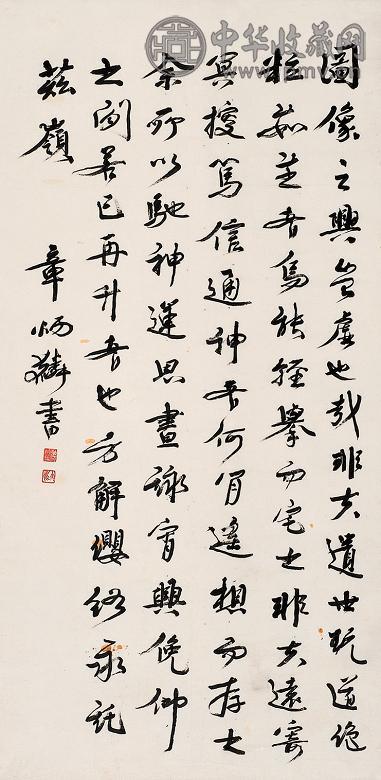 中华收藏网
圖像之興豈虛也哉非夫遺世玩道絕
粒茹芝者烏能輕舉而宅之非夫遠寄
冥搜篤信通神者何肯遙想而存之
余所以馳神運思晝詠宵興俛仰
之間若已再升者也方解纓絡永託
茲嶺
章炳麟書